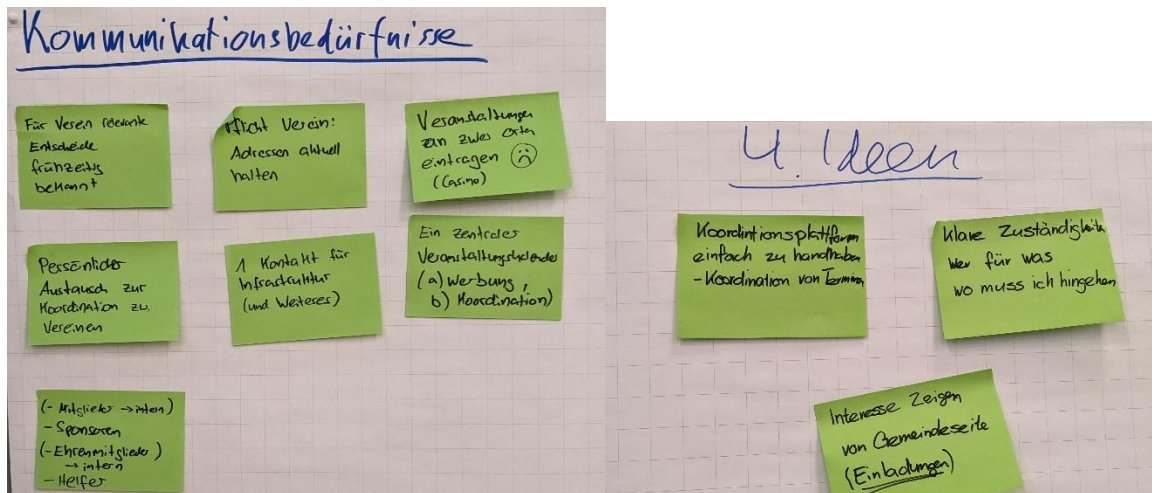 Kommunikationsbedürfnisse
Für Verein relevante
Entscheide
frühzeitig
bekannt
Pflicht Verein:
Adressen aktuell
halten
Veranstaltungen
an zwei Orten
eintragen ☹
(Casino)
Persönlicher
Austausch zur
Koordination zw.
Vereinen
1 Kontakt für
Infrastruktur
(und Weiteres)
Ein zentraler
Veranstaltungskalender
(a) Werbung,
b) Koordination)
(- Mitglieder → intern)
- Sponsoren
(- Ehrenmitglieder)
→ intern
- Helfer
4. Ideen
Koordintionsplattform
einfach zu handhaben
- Koordination von Terminen
Klare Zuständigkeiten
wer für was
wo muss ich hingehen
Interesse Zeigen
von Gemeindeseite
(Einladungen)